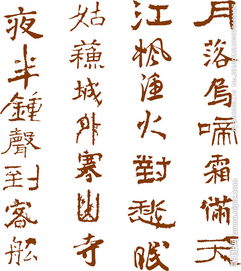 月落烏啼霜滿天
江楓漁火對愁眠
姑蘇城外寒山寺
夜半鍾聲到客舩